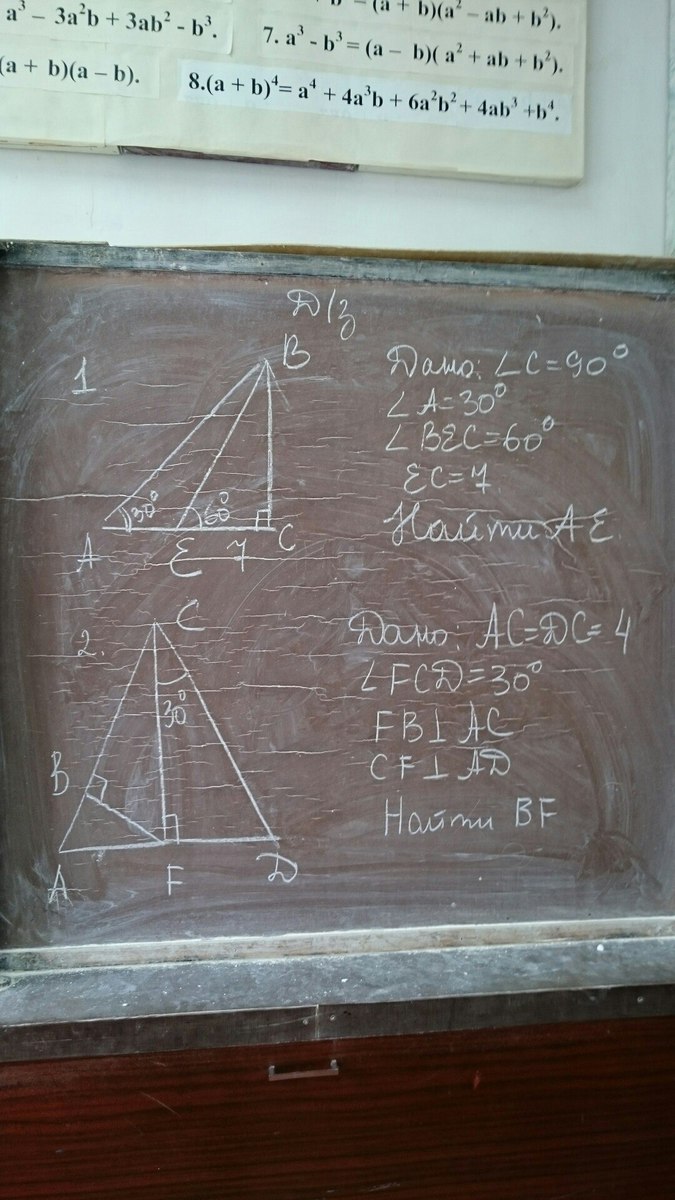 a³ - 3a²b + 3ab² - b³.
(a + b)(a² - ab + b²).
7. a³ - b³ = (a - b)( a² + ab + b²).
(a + b)(a - b).
8.(a + b)⁴= a⁴ + 4a³b + 6a²b² + 4ab³ +b⁴.
Д/з
1
B
30°
60°
A
E
7
C
Дано: ∠C=90°
∠A=30°
∠BEC=60°
EC=7
Найти AE.
2.
C
30°
B
A
F
D
Дано: AC=DC=4
∠FCD=30°
FB⊥AC
CF⊥AD
Найти BF